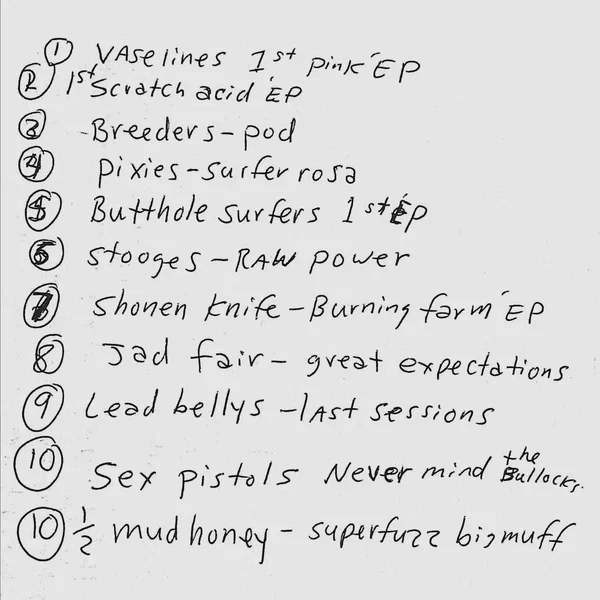 1 VASelines 1st pink EP
2 1st Scratch acid EP
3 -Breeders-pod
4 pixies-surfer rosa
5 Butthole surfers 1st EP
6 Stooges-RAW power
7 Shonen Knife-Burning farm EP
8 Jad fair- great expectations
9 Lead bellys -lAst sessions
10 Sex pistols Never mind the Bullocks.
10 1/2 mudhoney- superfuzz bigmuff